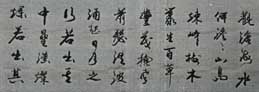 觀滄海水
何澹澹山島
竦峙樹木
叢生百草
豐茂秋風
蕭瑟洪波
涌起日月之
行若出其
中星漢燦
爛若出其